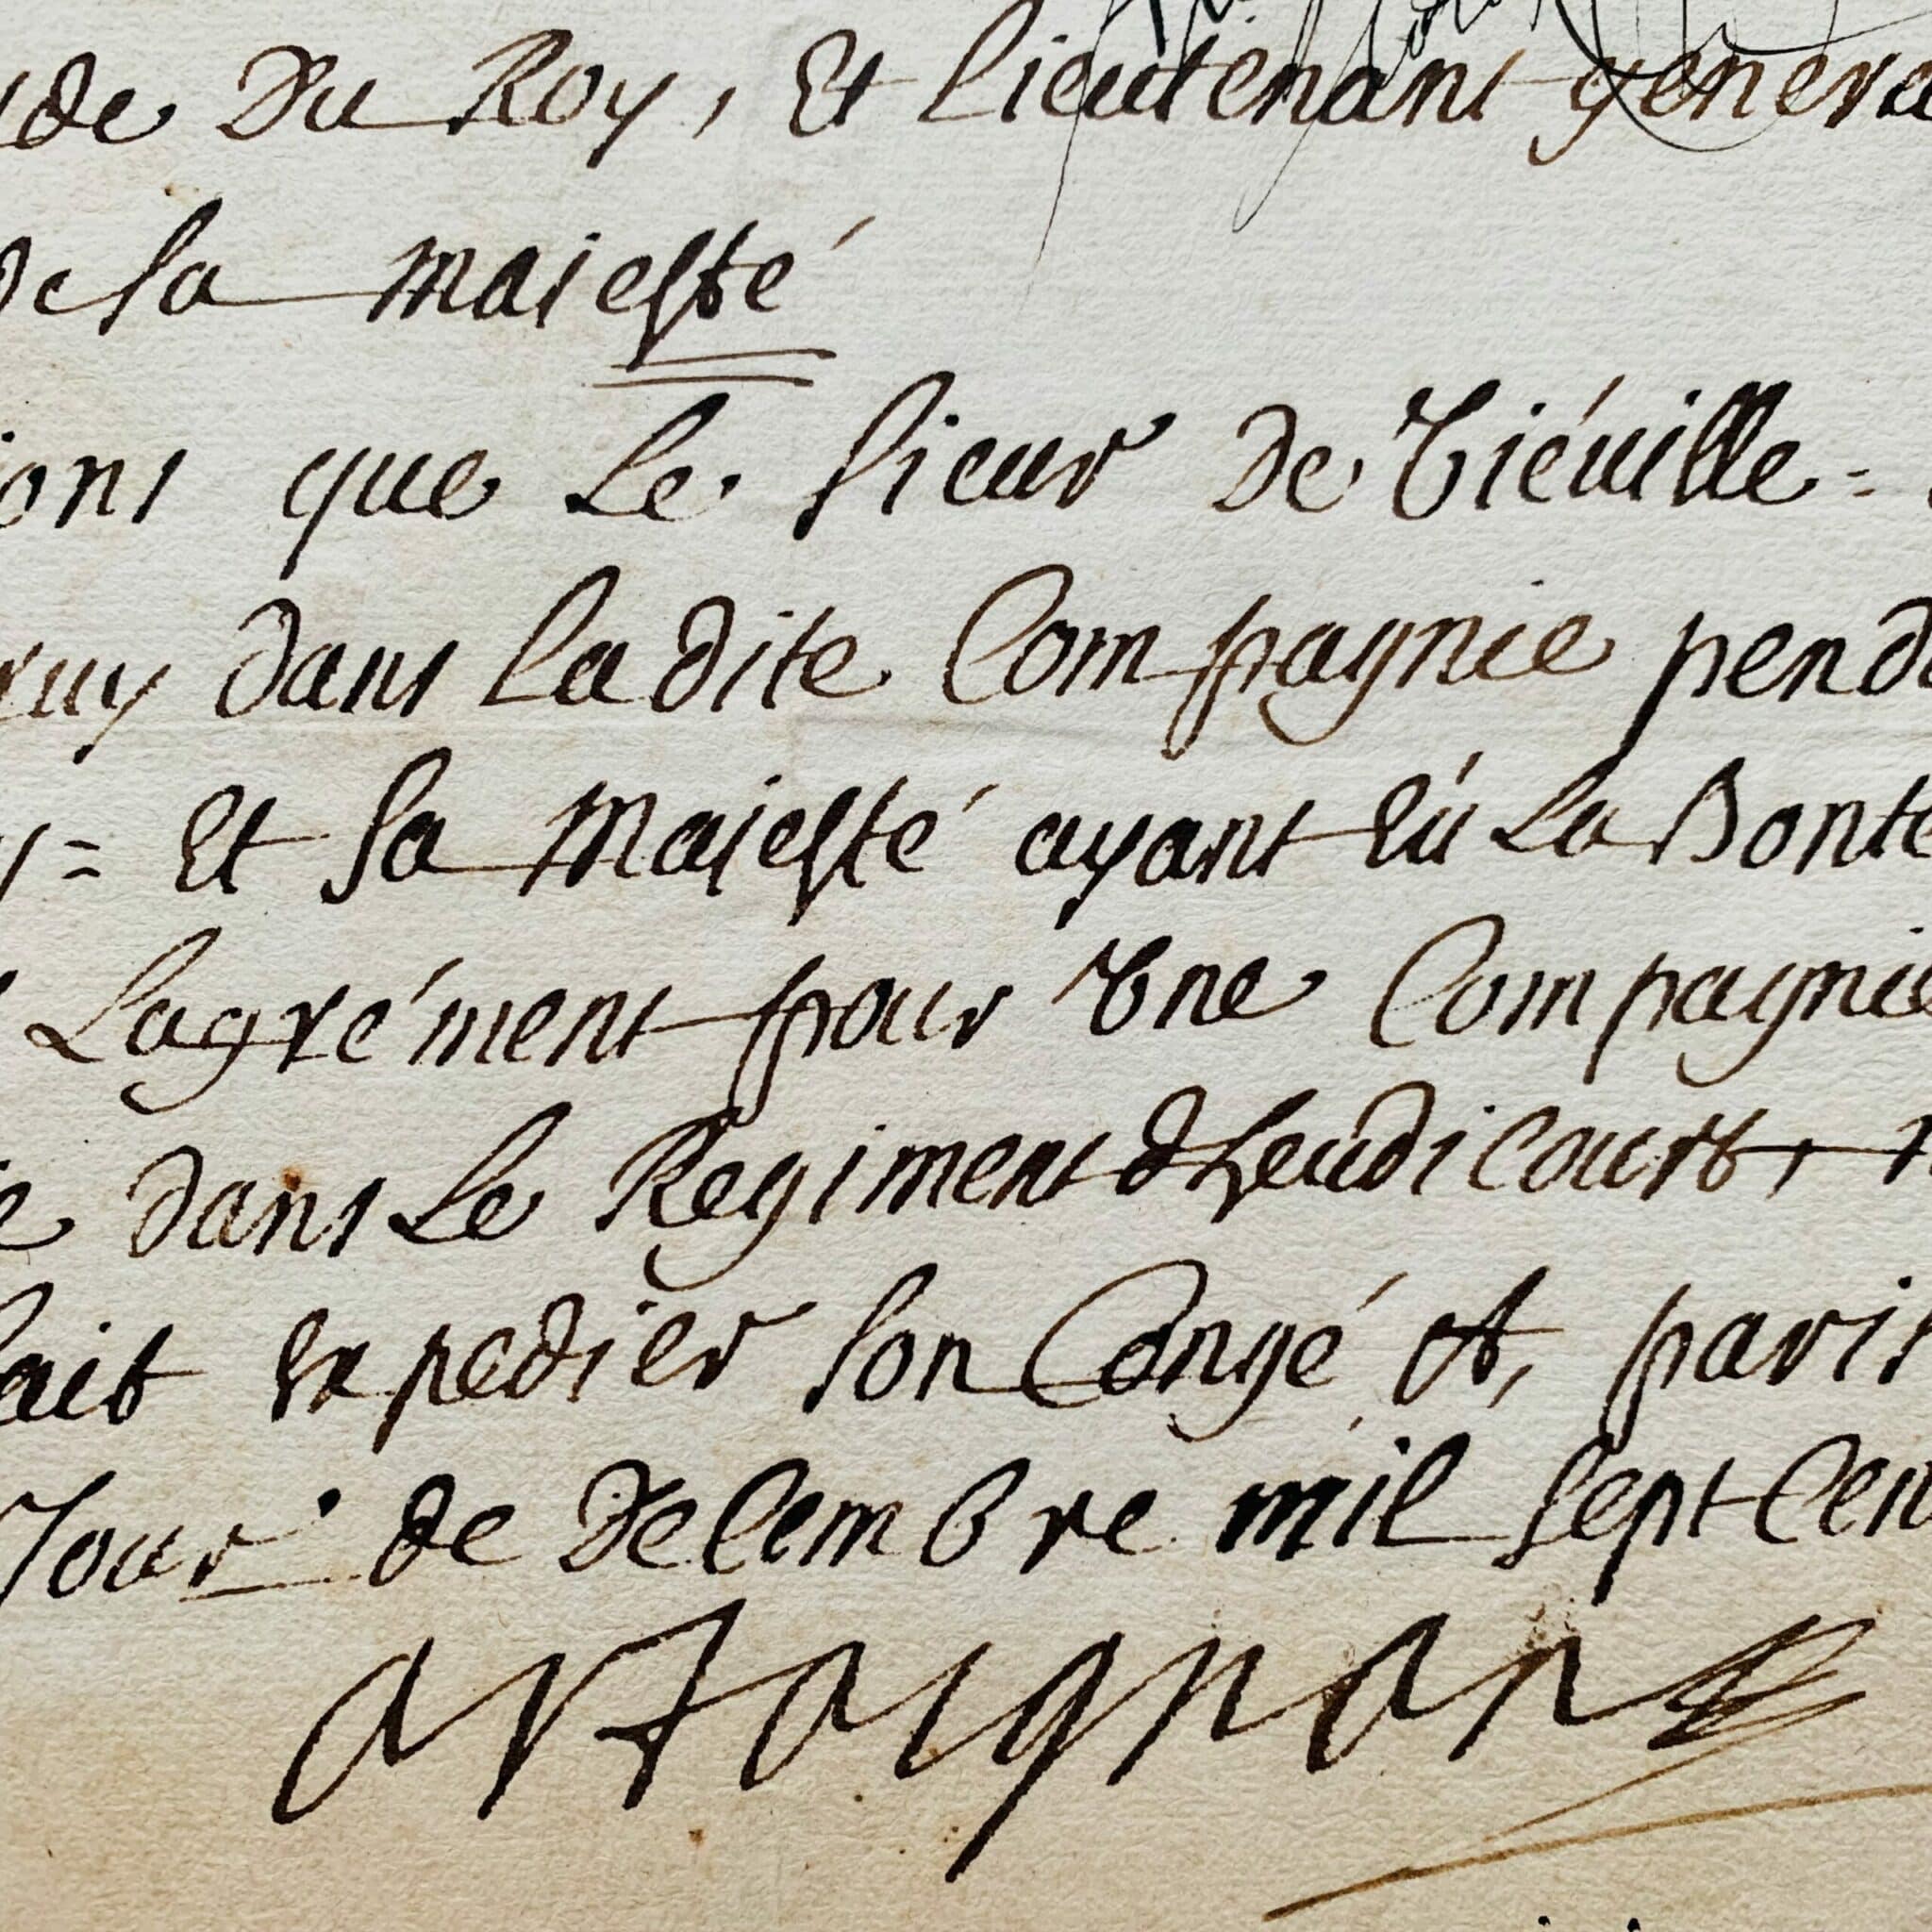 de Du Roy, Et Lieutenant genera
de sa maiesté
ions que Le sieur de Tiéuille =
ruy dans La dite Compagnie pend
y = Et sa Maiesté ayant Eú La Bonte
Lagrément pour Vne Compagnie
e dans Le Regiment d heudicourt,
fait Expedier son Congé A, paris
Jour de Decembre mil sept Cen
artaignan